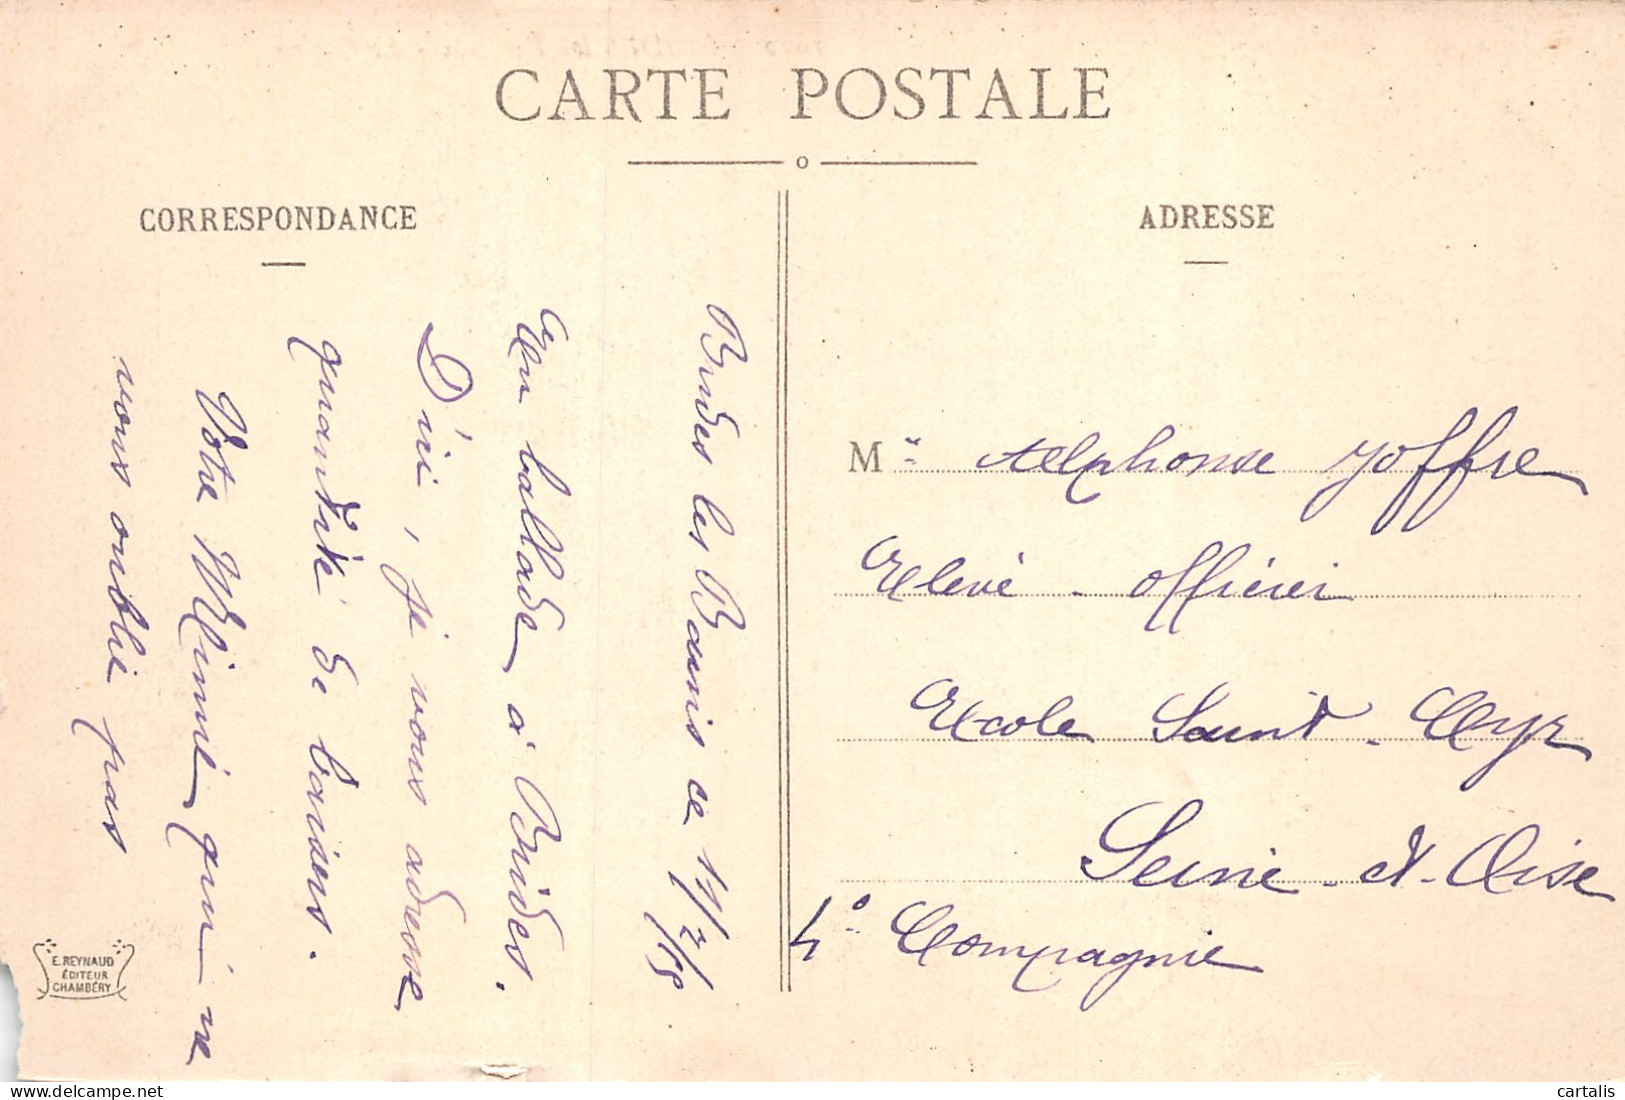 CARTE POSTALE
CORRESPONDANCE
Brides les Bains ce 17/7/15
En ballade à Brides.
D'ici, je vous adresse
quantité de baisers.
Votre Mimi qui ne
vous oublie pas
E. REYNAUD
ÉDITEUR
CHAMBÉRY
ADRESSE
Mr Alphonse Joffre
Elevé - officier
Ecole Saint-Cyr
Seine-et-Oise
4e Compagnie
delcampe.net
cartalis